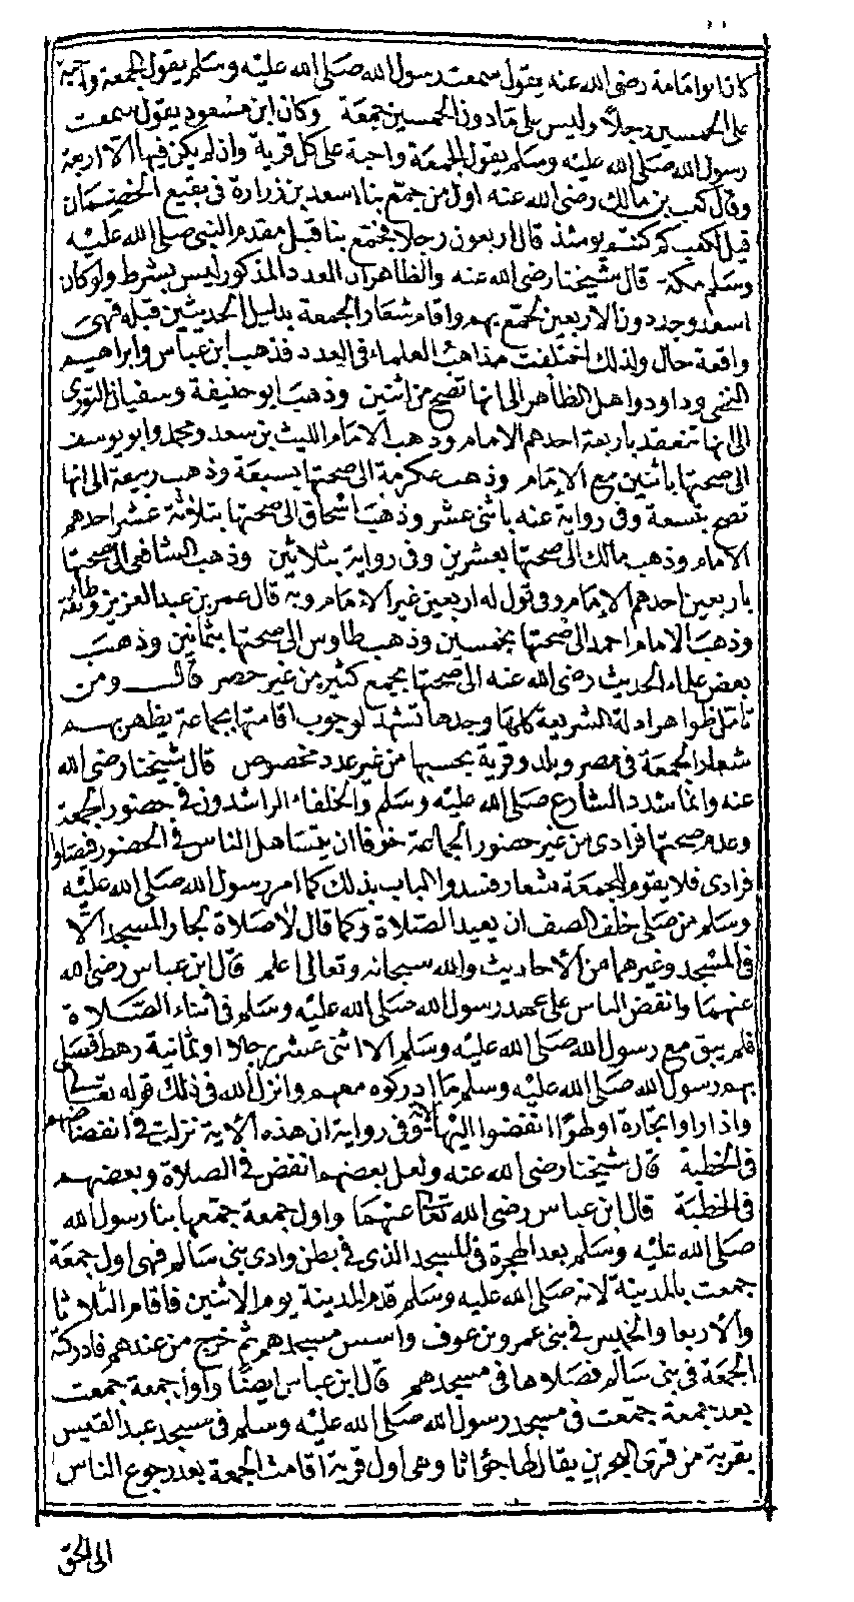 كان ابو امامة رضى الله عنه يقول سمعت رسول الله صلى الله عليه وسلم يقول الجمعة واجبة
على الخمسين رجلا وليس على ما دون الخمسين جمعة وكان ابن مسعود يقول سمعت
رسول الله صلى الله عليه وسلم يقول الجمعة واجبة على كل قرية وان لم يكن فيها الا اربعة
وقال كعب بن مالك رضى الله عنه اول من جمع بنا اسعد بن زرارة فى بقيع الخضمان
قيل لكعب كم كنتم يومئذ قال اربعون رجلا فجمع بنا قبل مقدم النبى صلى الله عليه
وسلم مكة قال شيخنا رضى الله عنه والظاهر ان العدد المذكور ليس بشرط ولو كان
اسعد وجد دون الاربعين لجمع بهم واقام شعار الجمعة بدليل الحديثين قبله فهى
واقعة حال ولذلك اختلفت مذاهب العلماء فى العدد فذهب ابن عباس وابراهيم
النخعى وداود واهل الظاهر الى انها تصح من اثنين وذهب ابو حنيفة وسفيان الثورى
الى انها تنعقد باربعة احدهم الامام وذهب الامام الليث بن سعد ومحمد وابو يوسف
الى صحتها باثنين مع الامام وذهب عكرمة الى صحتها بسبعة وذهب ربيعة الى انها
تصح بتسعة وفى رواية عنه باثنى عشر وذهب اسحاق الى صحتها بثلاثة عشر احدهم
الامام وذهب مالك الى صحتها بعشرين وفى رواية بثلاثين وذهب الشافعى الى صحتها
باربعين احدهم الامام وفى قول له اربعين غير الامام وبه قال عمر بن عبد العزيز وطائفة
وذهب الامام احمد الى صحتها بخمسين وذهب طاوس الى صحتها بثمانين وذهب
بعض علماء الحديث رضى الله عنه الى صحتها بجمع كثير من غير حصر قالــ ومن
تامل ظواهر ادلة الشريعة كلها وجدها تشهد لوجوب اقامتها بجماعة يظهر بهم
شعار الجمعة فى مصر وبلد وقرية بحسبها من غير عدد مخصوص قال شيخنا رضى الله
عنه وانما شدد الشارع صلى الله عليه وسلم والخلفاء الراشدون فى حضور الجمعة
وعدم صحتها فرادى من غير حضور الجماعة خوفا ان يتساهل الناس فى الحضور فيصلوا
فرادى فلا يقوم للجمعة شعار فسدوا الباب بذلك كما امر رسول الله صلى الله عليه
وسلم من صلى خلف الصف ان يعيد الصلاة وكما قال لا صلاة لجار المسجد الا
فى المسجد وغيرهما من الاحاديث والله سبحانه وتعالى اعلم قال ابن عباس رضى الله
عنهما وانفض الناس على عهد رسول الله صلى الله عليه وسلم فى اثناء الصلاة
فلم يبق مع رسول الله صلى الله عليه وسلم الا اثنى عشر رجلا او ثمانية رهط فصلى
بهم رسول الله صلى الله عليه وسلم ما ادركوه معهم وانزل الله فى ذلك قوله تعالى
واذا راوا تجارة او لهوا انفضوا اليها الاية وفى رواية ان هذه الاية نزلت فى انفضاضهم
فى الخطبة قال شيخنا رضى الله عنه ولعل بعضهم انفض فى الصلاة وبعضهم
فى الخطبة قال ابن عباس رضى الله تعالى عنهما واول جمعة جمعها بنا رسول الله
صلى الله عليه وسلم بعد الهجرة فى المسجد الذى فى بطن وادى بنى سالم فهى اول جمعة
جمعت بالمدينة لانه صلى الله عليه وسلم قدم المدينة يوم الاثنين فاقام الثلاثا
والاربعا والخميس فى بنى عمرو بن عوف واسس مسجدهم ثم خرج من عندهم فادركته
الجمعة فى بنى سالم فصلاها فى مسجدهم قال ابن عباس ايضا واول جمعة جمعت
بعد جمعة جمعت فى مسجد رسول الله صلى الله عليه وسلم فى مسجد عبد القيس
بقرية من قرى البحرين يقال لها جؤاثا وهى اول قرية اقامت الجمعة بعد رجوع الناس
الى الحق